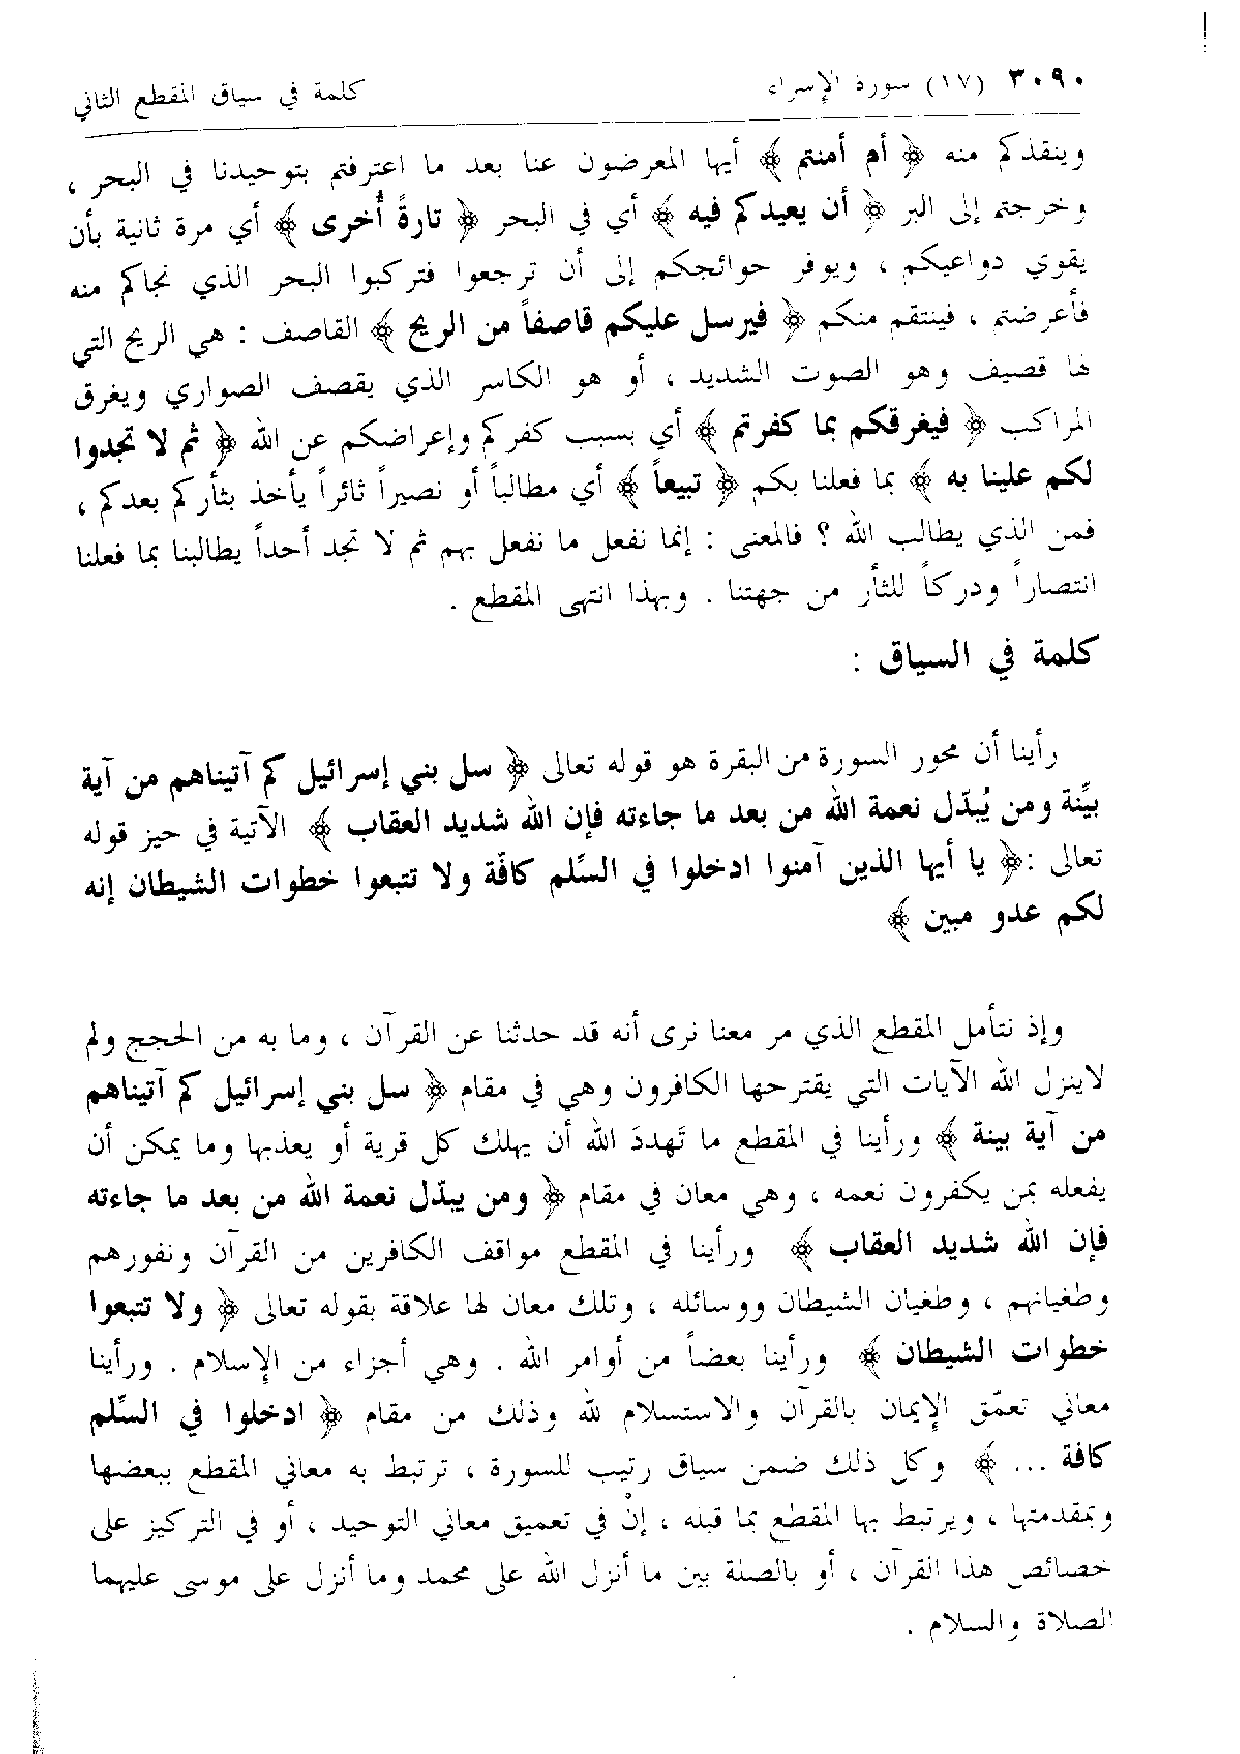 ٣٠٩٠ (١٧) سورة الإسراء كلمة في سياق المقطع الثاني
وينقذكم منه ﴿ أم أمنتم ﴾ أيها المعرضون عنا بعد ما اعترفتم بتوحيدنا في البحر ،
وخرجتم إلى البر ﴿ أن يعيدكم فيه ﴾ أي في البحر ﴿ تارةً أُخرى ﴾ أي مرة ثانية بأن
يقوي دواعيكم ، ويوفر حوائجكم إلى أن ترجعوا فتركبوا البحر الذي نجاكم منه
فأعرضتم ، فينتقم منكم ﴿ فيرسل عليكم قاصفاً من الريح ﴾ القاصف : هي الريح التي
لها قصيف وهو الصوت الشديد ، أو هو الكاسر الذي يقصف الصواري ويغرق
المراكب ﴿ فيغرقكم بما كفرتم ﴾ أي بسبب كفركم وإعراضكم عن الله ﴿ ثم لا تجدوا
لكم علينا به ﴾ بما فعلنا بكم ﴿ تبيعاً ﴾ أي مطالباً أو نصيراً ثائراً يأخذ بثأركم بعدكم ،
فمن الذي يطالب الله ؟ فالمعنى : إنما نفعل ما نفعل بهم ثم لا تجد أحداً يطالبنا بما فعلنا
انتصاراً ودركاً للثأر من جهتنا . وبهذا انتهى المقطع .
كلمة في السياق :
رأينا أن محور السورة من البقرة هو قوله تعالى ﴿ سل بني إسرائيل كم آتيناهم من آية
بيِّنة ومن يُبدّل نعمة الله من بعد ما جاءته فإن الله شديد العقاب ﴾ الآتية في حيز قوله
تعالى :﴿ يا أيها الذين آمنوا ادخلوا في السِّلم كافّة ولا تتبعوا خطوات الشيطان إنه
لكم عدو مبين ﴾
وإذ نتأمل المقطع الذي مر معنا نرى أنه قد حدثنا عن القرآن ، وما به من الحجج ولم
لاينزل الله الآيات التي يقترحها الكافرون وهي في مقام ﴿ سل بني إسرائيل كم آتيناهم
من آية بينة ﴾ ورأينا في المقطع ما تَهددَ الله أن يهلك كل قرية أو يعذبها وما يمكن أن
يفعله بمن يكفرون نعمه ، وهي معان في مقام ﴿ ومن يبدّل نعمة الله من بعد ما جاءته
فإن الله شديد العقاب ﴾ ورأينا في المقطع مواقف الكافرين من القرآن ونفورهم
وطغيانهم ، وطغيان الشيطان ووسائله ، وتلك معان لها علاقة بقوله تعالى ﴿ ولا تتبعوا
خطوات الشيطان ﴾ ورأينا بعضاً من أوامر الله . وهي أجزاء من الإسلام . ورأينا
معاني تعمّق الإيمان بالقرآن والاستسلام لله وذلك من مقام ﴿ ادخلوا في السِّلم
كافة ... ﴾ وكل ذلك ضمن سياق رتيب للسورة ، ترتبط به معاني المقطع ببعضها
وبمقدمتها ، ويرتبط بها المقطع بما قبله ، إنْ في تعميق معاني التوحيد ، أو في التركيز على
خصائص هذا القرآن ، أو بالصلة بين ما أنزل الله على محمد وما أنزل على موسى عليهما
الصلاة والسلام .